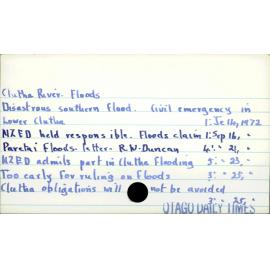 Clutha River. Floods
Disastrous southern flood. Civil emergency in
Lower Clutha 1. Je 16, 1972
NZED held responsible. Floods claim 1. Sep 16, "
Paretai Floods - letter - R.W. Duncan 4. " 21, "
NZED admits part in Clutha Flooding 5. " 23, "
Too early for ruling on Floods 3. " 25, "
Clutha obligations will not be avoided
3. " 25, "
OTAGO DAILY TIMES